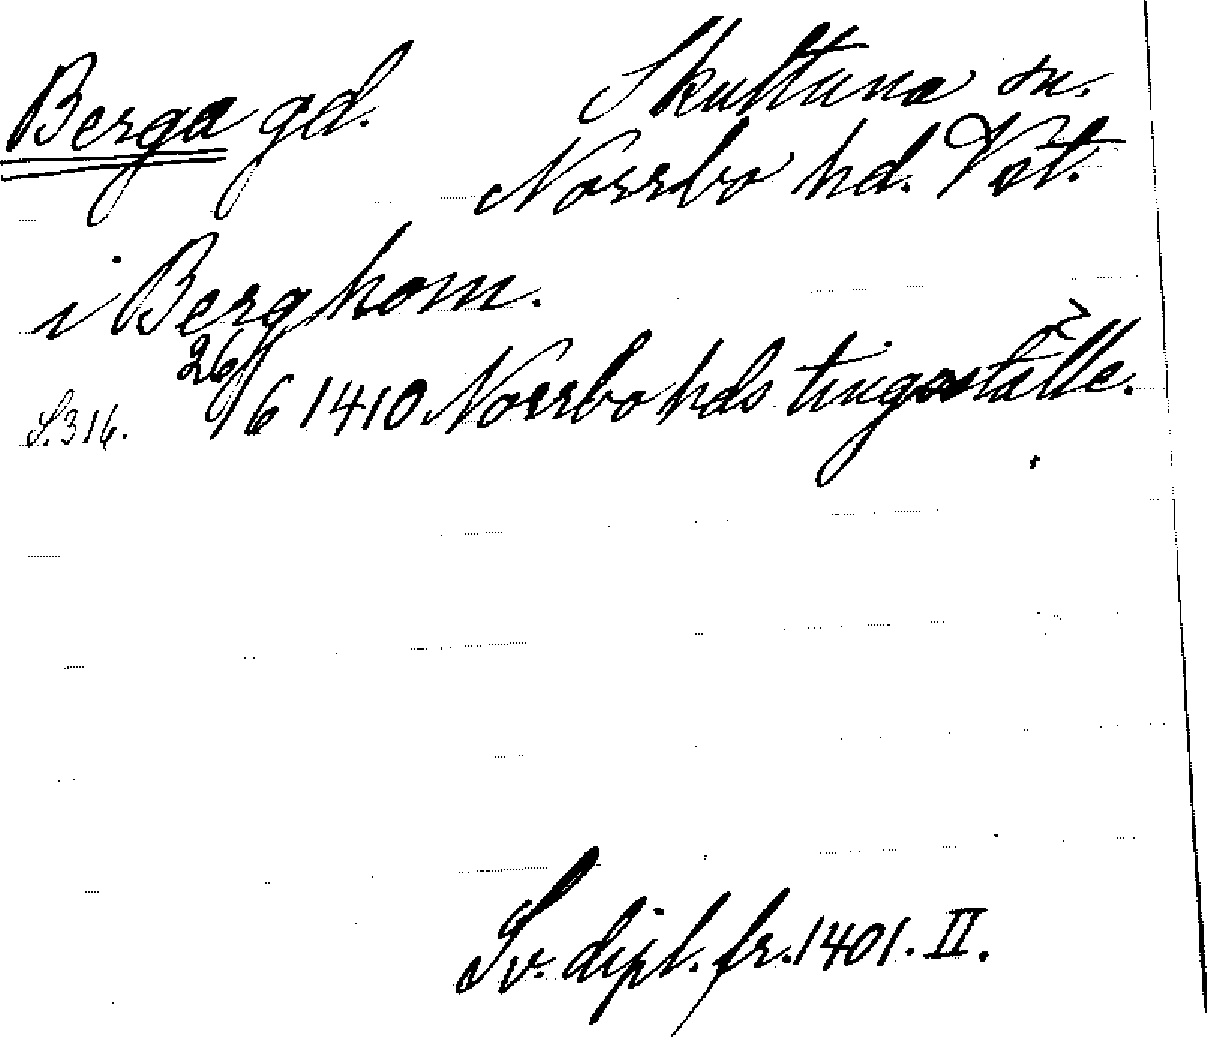 Berga gd. Skultuna sn.
Norrbo hd. Vstl.
i Berghom.
S. 316. 26/6 1410 Norrbo hds tingsställe.
Sv. dipl. fr. 1401. II.